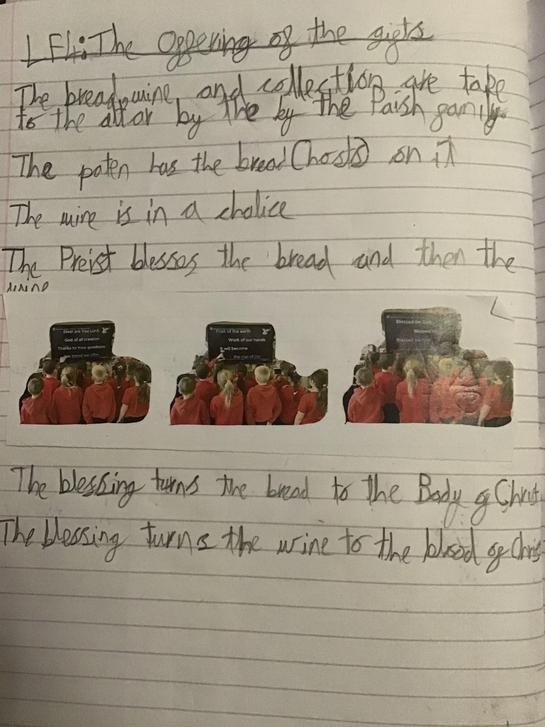 LF4: The Offering of the gifts
The bread, wine and collection are take
to the altar by the by the Paish family.
The paten has the bread (hosts) on it
The wine is in a chalice
The Preist blesses the bread and then the
wine
God of all creation
Fruit of the earth
Work of our hands
It will become
Blessed be God
The blessing turns the bread to the Body of Christ
The blessing turns the wine to the blood of Chris